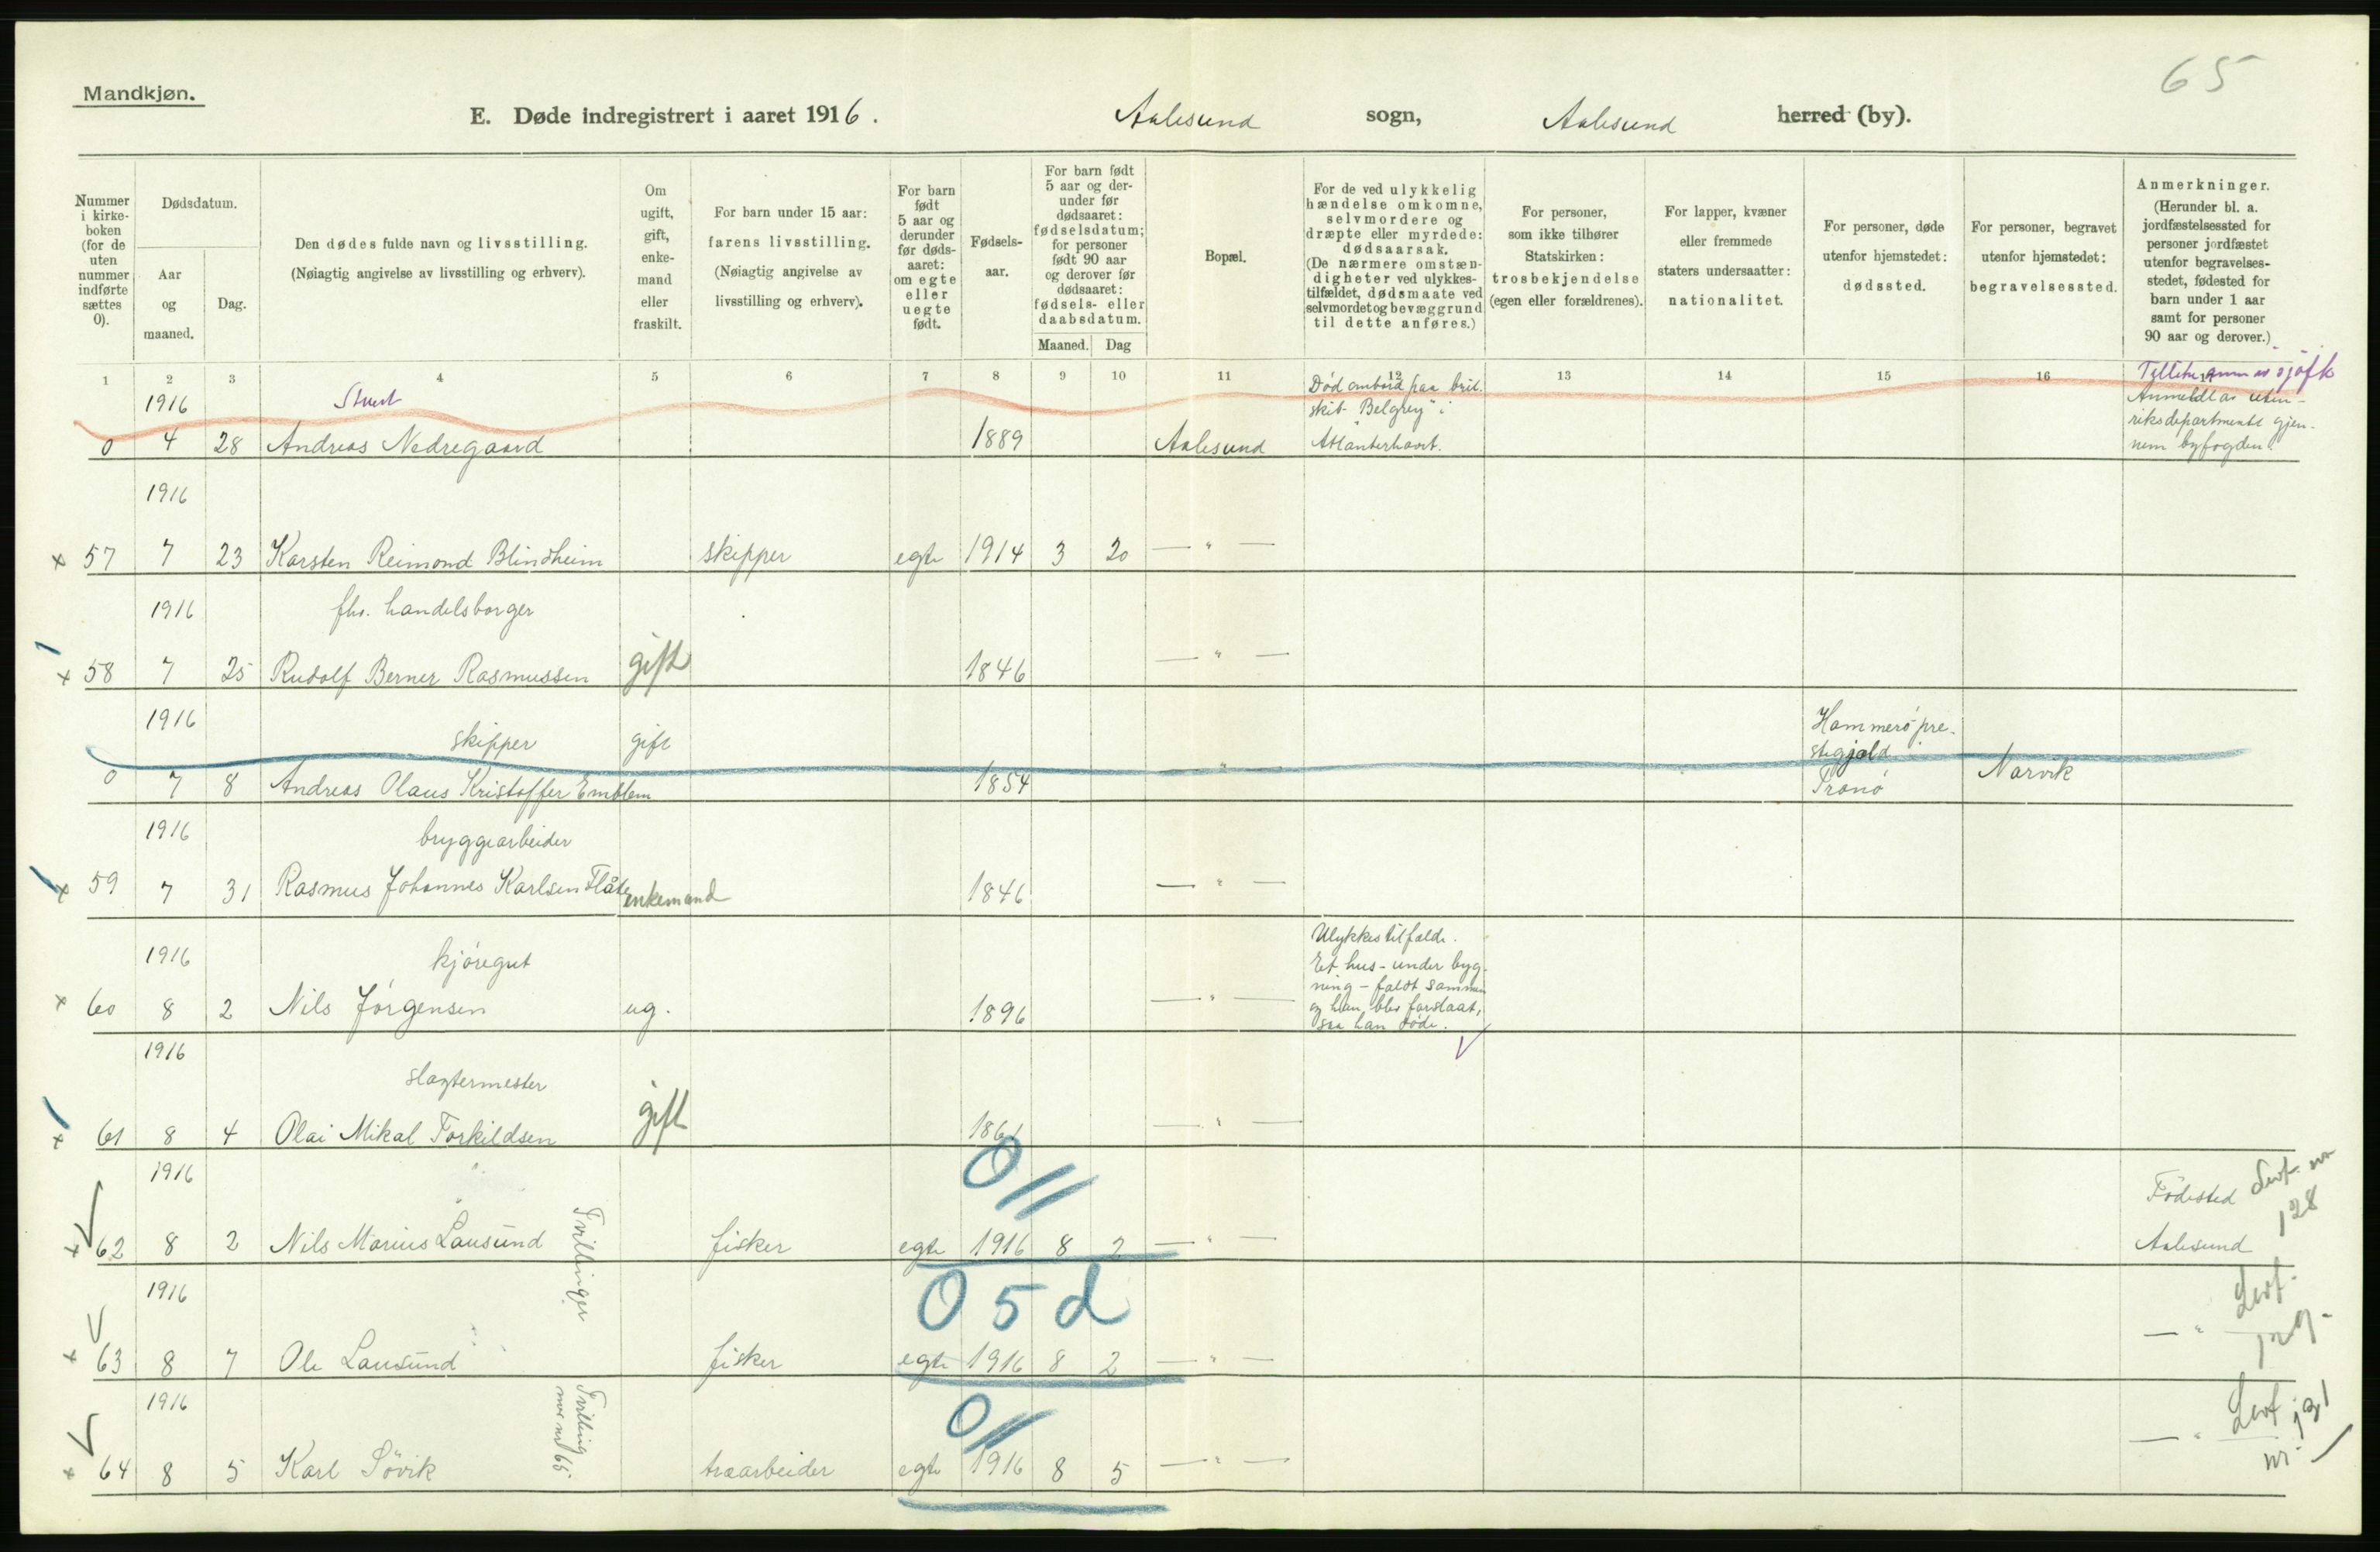 65
Mandkjøn.
E. Døde indregistrert i aaret 1916. Aalesund sogn, Aalesund herred (by).
Nummer i kirke-boken (for de uten nummer indførte sættes 0).
Dødsdatum.
Aar og maaned.
Dag.
Den dødes fulde navn og livsstilling.
(Nøiagtig angivelse av livsstilling og erhverv).
Om ugift, gift, enke-mand eller fraskilt.
For barn under 15 aar: farens livsstilling.
(Nøiagtig angivelse av livsstilling og erhverv).
For barn født 5 aar og derunder før døds-aaret: om egte eller uegte født.
Fødsels-aar.
For barn født 5 aar og der-under før dødsaaret: fødselsdatum; for personer født 90 aar og derover før dødsaaret: fødsels- eller daabsdatum.
Maaned. Dag
Bopæl.
For de ved ulykkelig hændelse omkomne, selvmordere og dræpte eller myrdede: dødsaarsak.
(De nærmere omstæn-digheter ved ulykkes-tilfældet, dødsmaate ved selvmordet og bevæggrund til dette anføres.)
For personer, som ikke tilhører Statskirken: trosbekjendelse (egen eller forældrenes).
For lapper, kvæner eller fremmede staters undersaatter: nationalitet.
For personer, døde utenfor hjemstedet: dødssted.
For personer, begravet utenfor hjemstedet: begravelsessted.
Anmerkninger.
(Herunder bl. a. jordfæstelsessted for personer jordfæstet utenfor begravelses-stedet, fødested for barn under 1 aar samt for personer 90 aar og derover.)
1 2 3 4 5 6 7 8 9 10 11 12 13 14 15 16 17
1916 Stuert Død ombord paa brit.
skib "Belgrey" i
Anmeldt av uten-
riksdepartementet gjen-
0 4 28 Andreas Nedregaard 1889 Aalesund Atlanterhavet. nem byfogden.
1916
x 57 7 23 Karsten Reimond Blindheim skipper egte 1914 3 20 — " —
1916 fhv. handelsborger
x 58 7 25 Rudolf Berner Rasmussen gift 1846 — " —
1916 skipper gift Hammerö pre-
stegjæld
0 7 8 Andreas Olaus Kristoffer Emblem 1854 " Tranö Narvik
1916 bryggearbeider
x 59 7 31 Rasmus Johannes Karlsen Flåte enkemand 1846 — " —
1916 kjöregut Ulykkestilfælde.
Et hus - under byg-
ning - faldt sammen
og han blev forslaat,
x 60 8 2 Nils Jörgensen ug. 1896 — " — saa han döde.
1916 slagtermester
x 61 8 4 Olai Mikal Torkildsen gift 1861 — " —
1916 0 // Födested
x 62 8 2 Nils Marius Lausund Tvillinger fisker egte 1916 8 2 — " — Aalesund 128
1916 0 5 d
x 63 8 7 Ole Lausund fisker egte 1916 8 2 — " — — " — 129
1916 0 //
x 64 8 5 Karl Sövik Tvilling med nr 65 træarbeider egte 1916 8 5 — " — — " — nr. 131